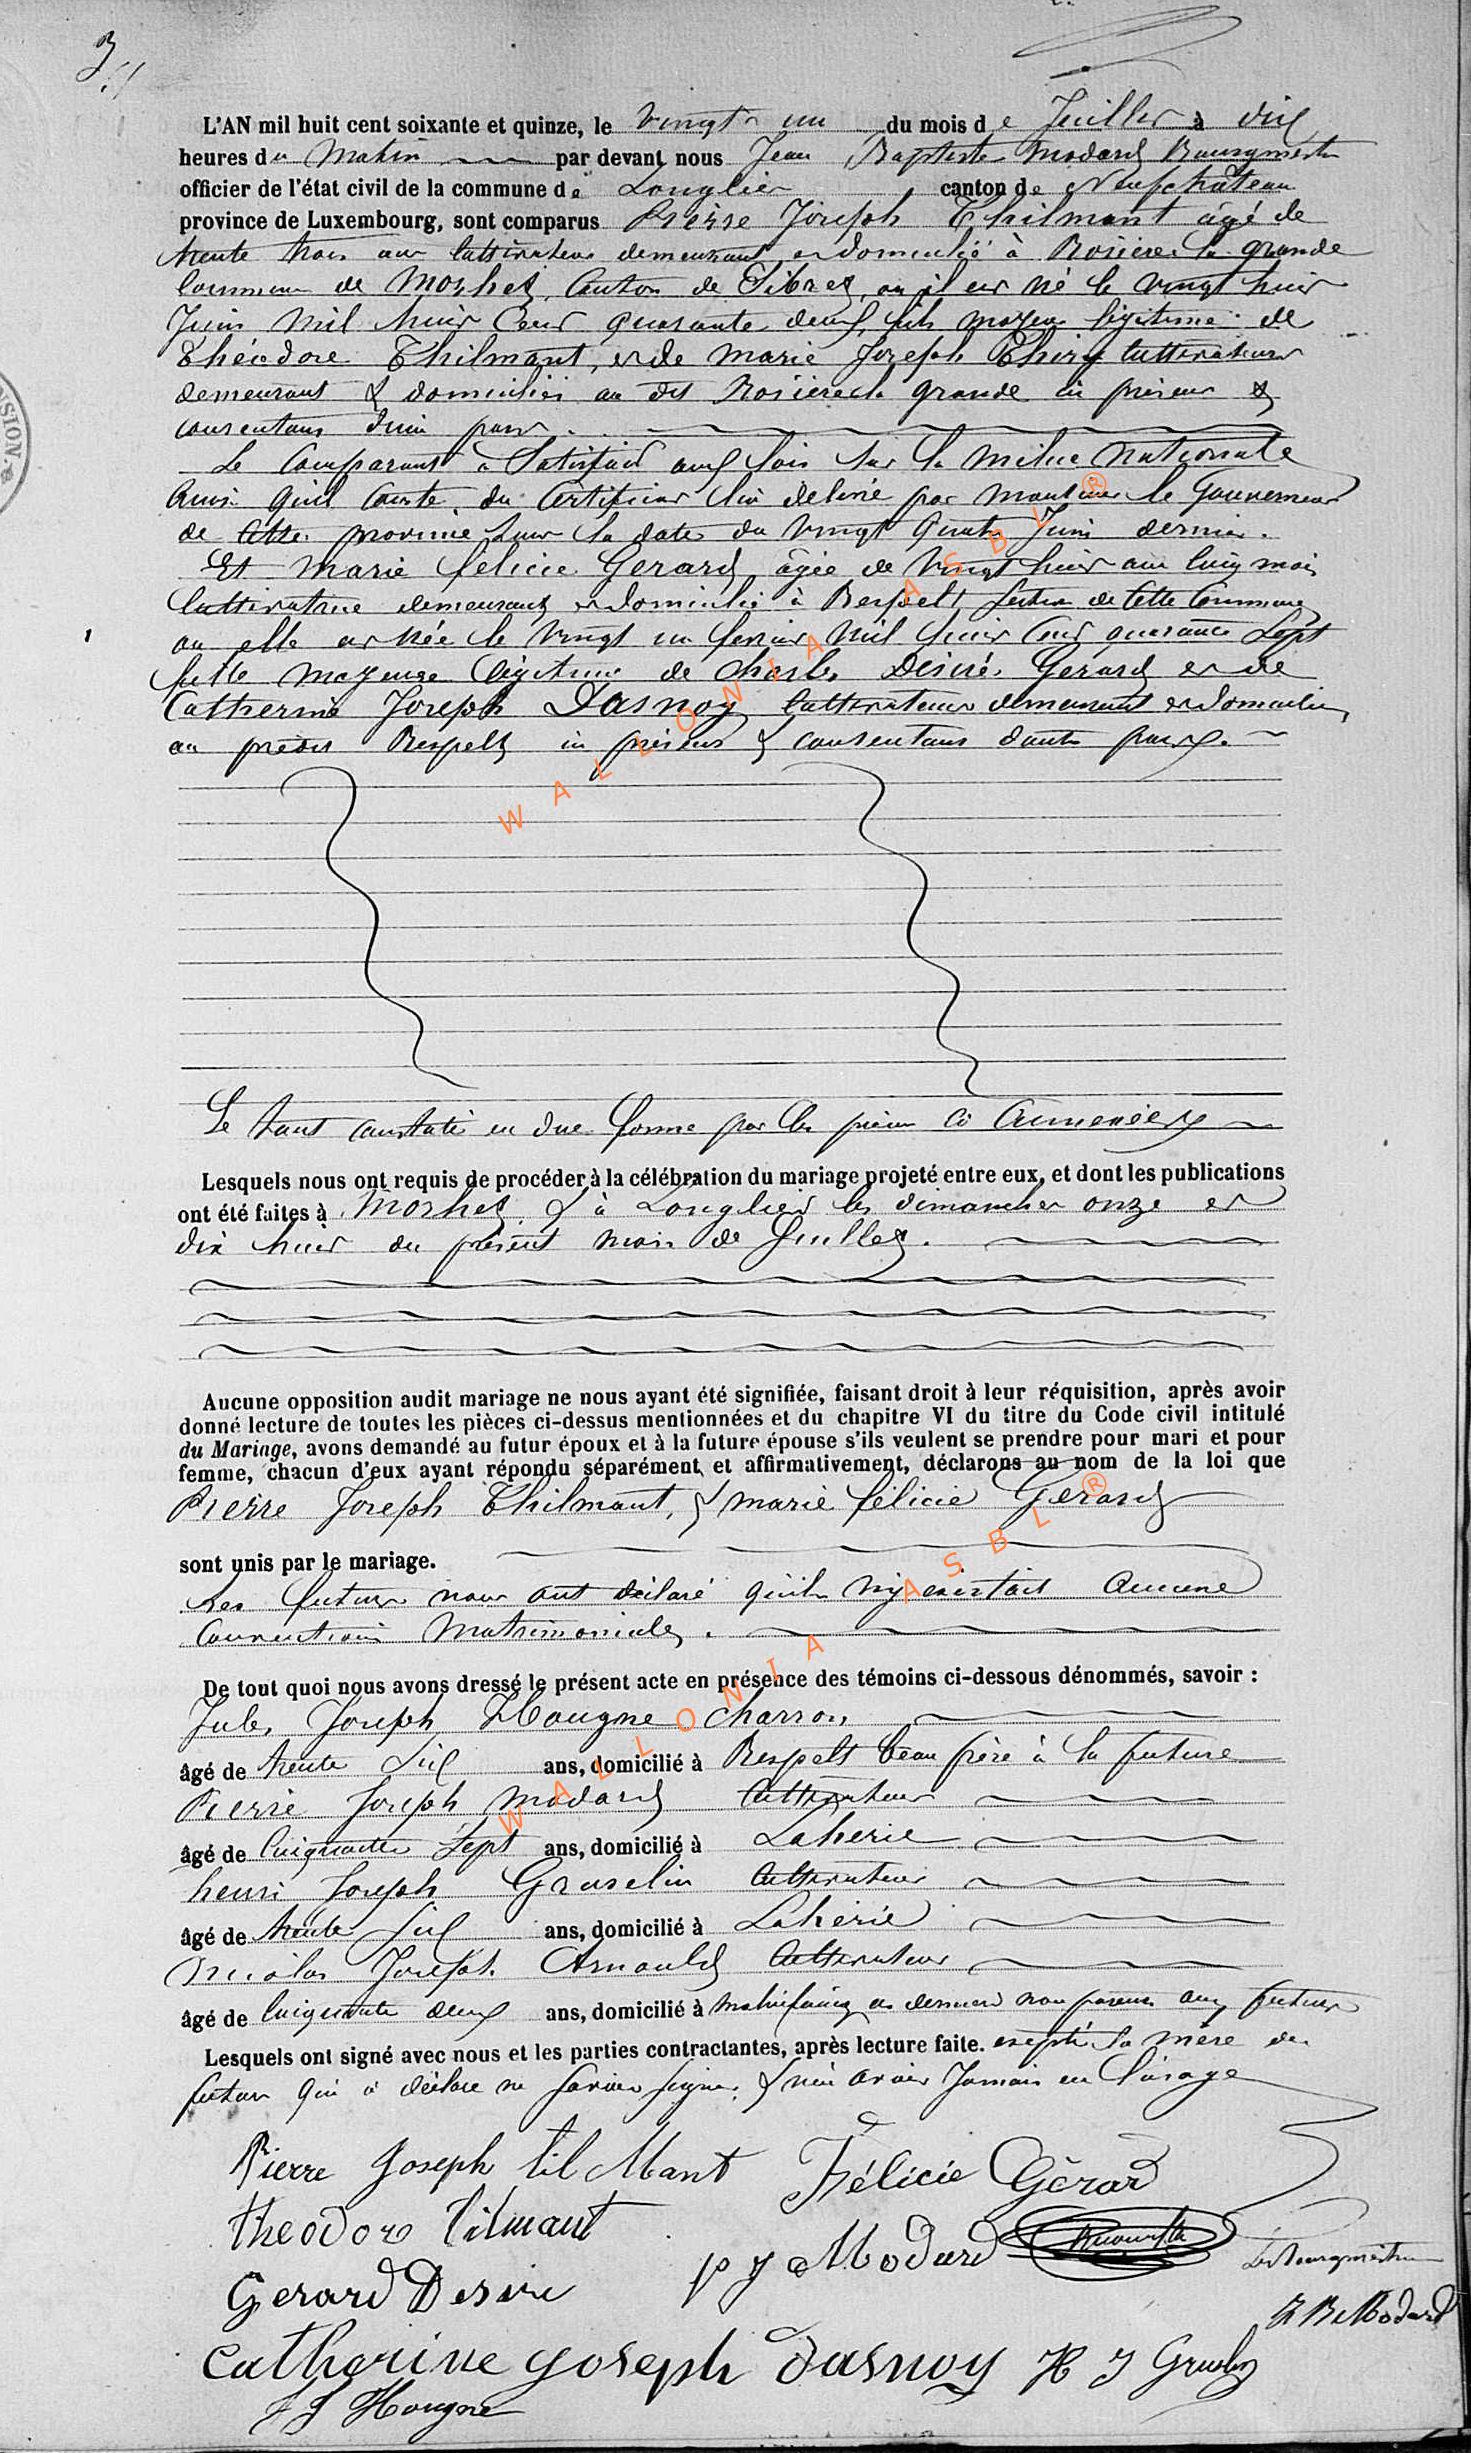 3
L'AN mil huit cent soixante et quinze, le vingt un du mois de Juillet à dix
heures du Matin par devant nous Jean Baptiste Modard Bourgmestre
officier de l'état civil de la commune de Longlier canton de Neufchâteau
province de Luxembourg, sont comparus Pierre Joseph Thilmant âgé de
trente trois ans cultivateur demeurant et domicilié à Rosieres la grande
commune de Morhet, Canton de Sibret, où il est né le vingt huit
Juin mil huit Cent quarante deux, fils majeur légitime de
Théodore Thilmant, et de Marie Joseph Thiry cultivateurs
demeurant & domiciliés au dit Rosiere la grande ici présens &
consentans d'une part.
Le Comparant a Satisfait aux lois sur la milice Nationale
Ainsi qu'il conste du Certificat lui délivré par Monsieur le Gouverneur
de Cette province sous la date du vingt quatre Juin dernier.
Et Marie félicie Gerard âgée de vingt huit ans cinq mois
Cultivatrice demeurant et domicilié à Respelt Section de Cette Commune
ou elle est née le vingt un février Mil huit Cent quarante Sept
fille majeure légitime de Charles Désiré Gerard et de
Catherine Joseph Dasnoy cultivateurs demeurant et domiciliés
au prédit Respelt ici présens & consentans d'autre part.
Le tout constaté en due forme par les pièces ci Annexées
Lesquels nous ont requis de procéder à la célébration du mariage projeté entre eux, et dont les publications
ont été faites à Morhet & à Longlier les dimanches onze et
dix huit du présent mois de Juillet.
Aucune opposition audit mariage ne nous ayant été signifiée, faisant droit à leur réquisition, après avoir
donné lecture de toutes les pièces ci-dessus mentionnées et du chapitre VI du titre du Code civil intitulé
du Mariage, avons demandé au futur époux et à la future épouse s'ils veulent se prendre pour mari et pour
femme, chacun d'eux ayant répondu séparément et affirmativement, déclarons au nom de la loi que
Pierre Joseph Thilmant, & marie félicie Gerard
sont unis par le mariage.
Les futurs nous ont déclaré qu'il n'y existait Aucune
Conventions Matrimoniales.
De tout quoi nous avons dressé le présent acte en présence des témoins ci-dessous dénommés, savoir :
Jules Joseph Hougne Charron
âgé de trente Six ans, domicilié à Respelt beau frère à la future
Pierre Joseph Modard Cultivateur
âgé de Cinquante Sept ans, domicilié à Laherie
henri Joseph Gruselin Cultivateur
âgé de trente Six ans, domicilié à Laherie
Nicolas Joseph Arnould Cultivateur
âgé de Cinquante deux ans, domicilié à Molinfaing ces derniers non parens aux futurs
Lesquels ont signé avec nous et les parties contractantes, après lecture faite. excepté la mère du
futur qui a déclaré ne savoir signer & n'en avoir Jamais eu l'usage
Pierre Joseph til Mant Félicie Gérard
theodore tilmant
p J Modard
Le Bourgmestre
Gerard Desire
J B Modard
Catherine Joseph dasnoy H J Gruslin
J J Hougne
WALLONIA ASBL ®
WALLONIA ASBL ®